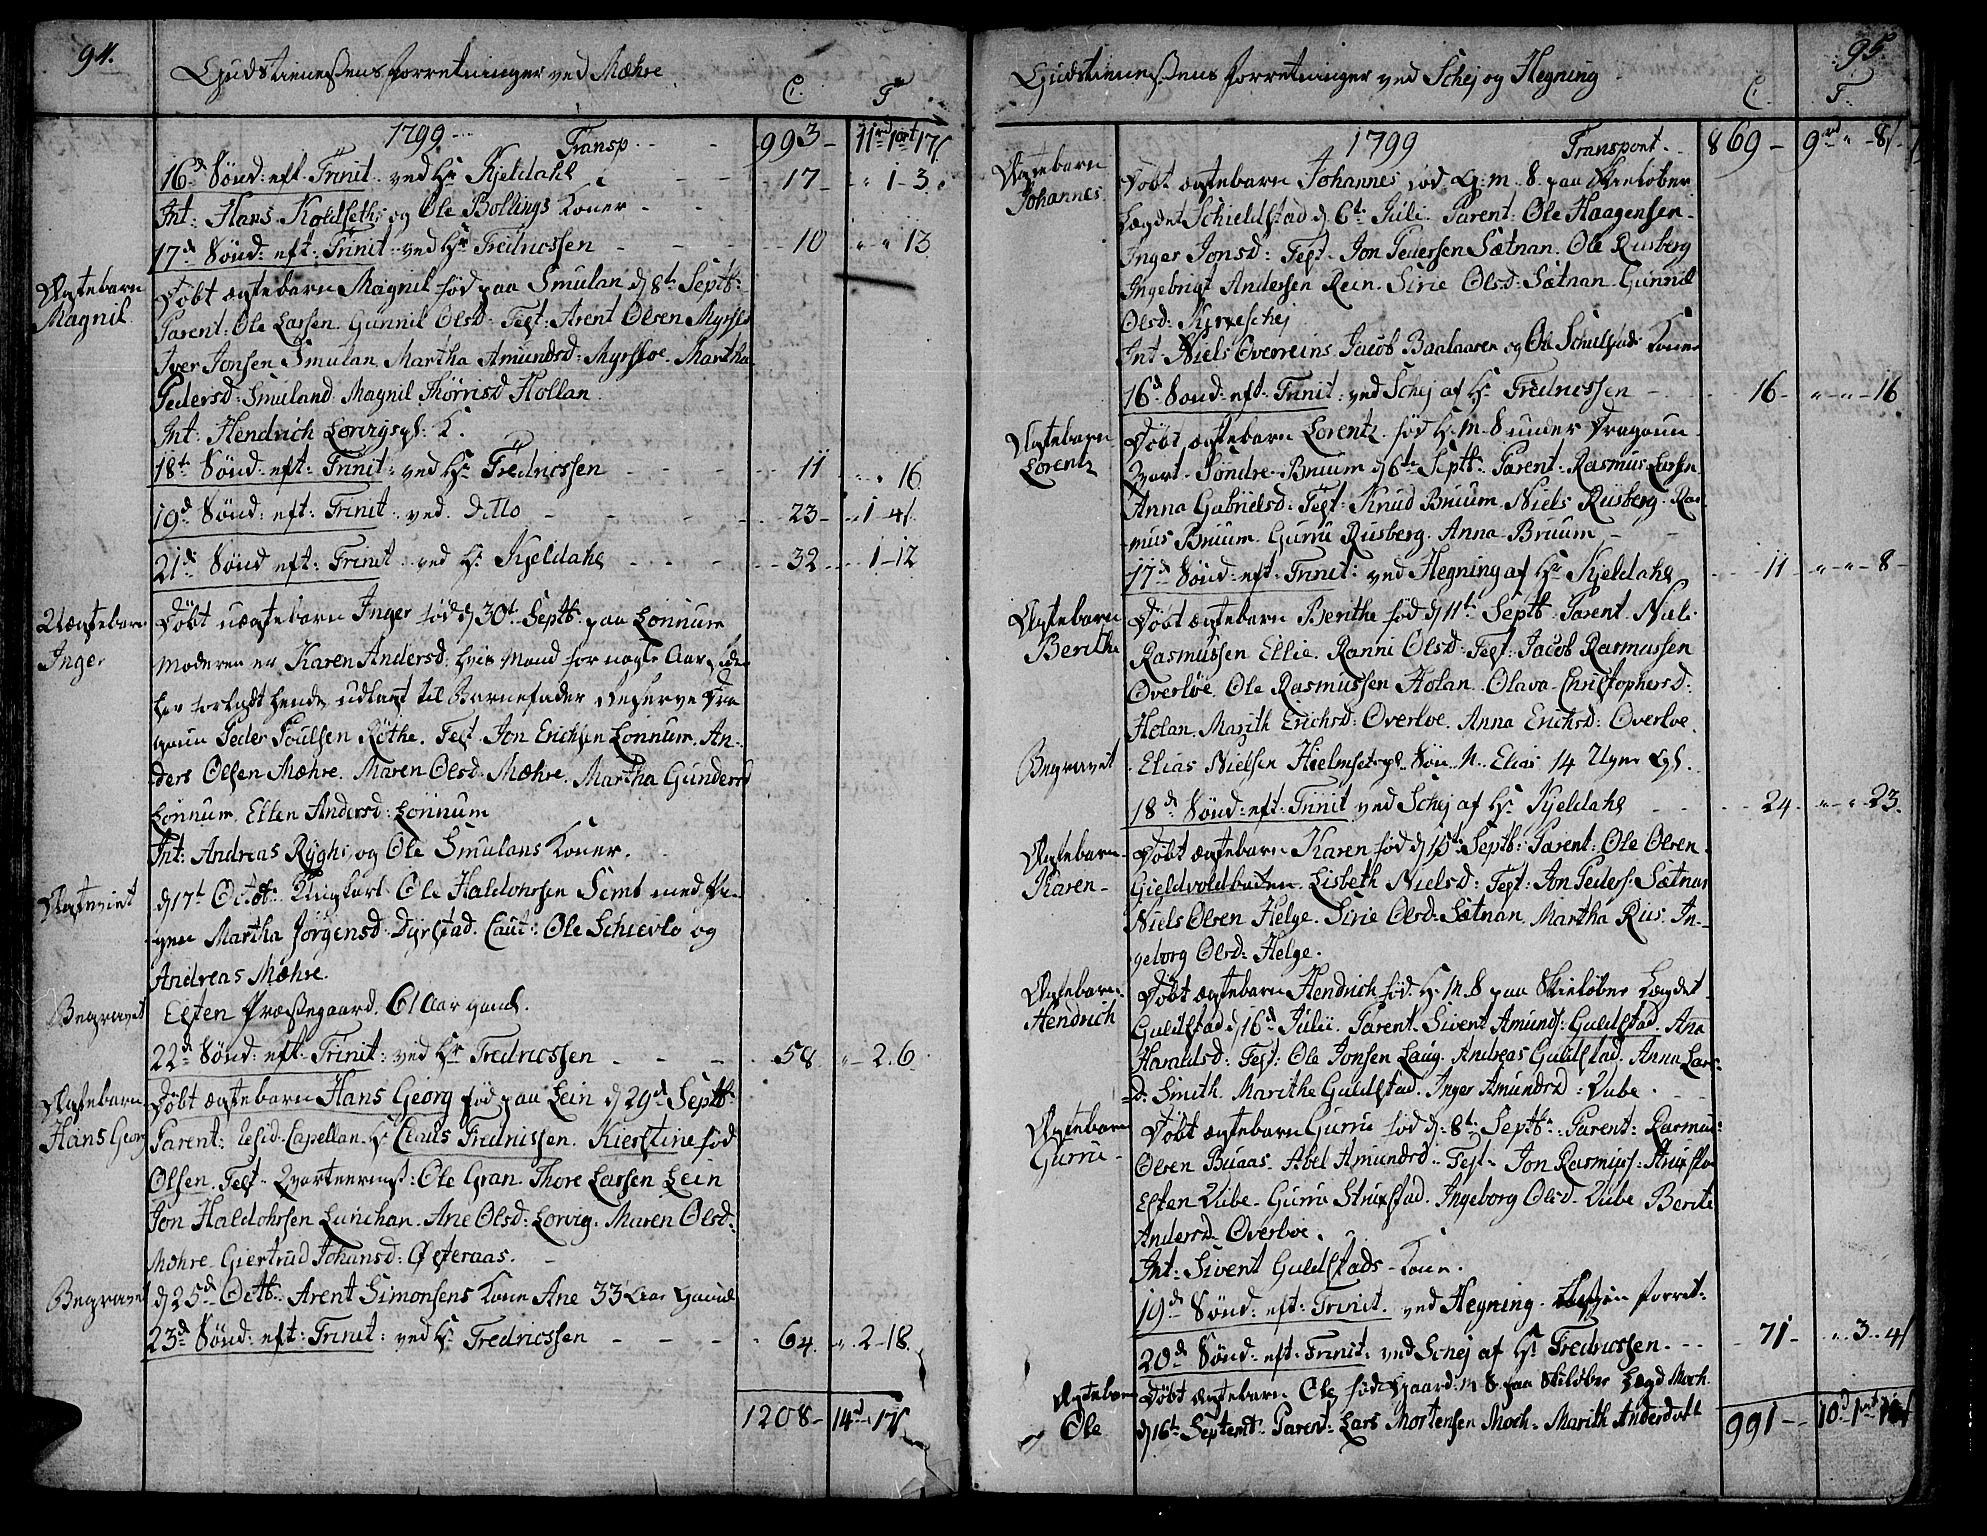 94.
Gudstienestens forretninger ved Mæhre
C. T.
1799 Transp. 993 11rd 1ort 17s
16d Sønd: eft Trinit. ved Hr Kjeldahl 17 1 3
Int: Hans Koldseths og Ole Bollings Koner
17d Sønd: eft: Trinit ved Hr Fredricssen 10 13
Ægtebarn Magnil
Døbt ægtebarn Magnil fød paa Smulan d 8t Septb:
Parent: Ole Larsen. Gunnil Olsd: Test: Arent Olsen Myrsloe
Iver Jonsen Smulan. Martha Amundsd: Myrsloe. Martha
Pedersd: Smuland. Magnil Thørrisd Hollan.
Int: Hendrich Lorvigspl: K.
18t Sønd: eft: Trinit: ved Hr Fredricssen 11 16
19d Sønd: eft: Trinit. ved Ditto 23 1 4
21d Sønd eft: Trinit ved Hr Kjeldahl 32 1 12
Uægtebarn Inger
Døbt uægtebarn Inger fød d 30t Septb: paa Lønnum
Moderen er Karen Andersd: hvis Mand for nogle Aar siden
har forladt hende, udlagt til Barnefader Reserve Dra
goun Peder Poulsen Røthe. Test. Jon Erichsen Lønnum. An-
ders Olsen Mæhre. Maren Olsd: Mæhre. Martha Gundersd
Lønnum. Elten Andersd: Lønnum
Int: Andreas Ryghs og Ole Smulans Koner.
Ægteviet
d 17t Octob: Ungkarl Ole Haldohrsen Semb med Pi-
gen Martha Jørgensd: Dyrstad. Caut: Ole Schievlo og
Andreas Mæhre.
Begravet
Elten Præstegaard. 61 Aar gaml.
22d Sønd: eft: Trinit: ved Hr Fredricssen 58 2 6
Ægtebarn Hans Georg
Døbt ægtebarn Hans Georg fød paa Lein d 29d Septb:
Parent: Resid: Capellan Hr Claus Fredricssen. Kierstine fød
Olsen. Test. Qvarteermst: Ole Gran. Thore Larsen Lein
Jon Haldohrsen Lunchan. Ane Olsd: Lorvig. Maren Olsd:
Møhre. Giertrud Johansd: Østeraas.
Begravet
d 25d Octb: Arent Simonsens Kone Ane 33 Aar gaml
23d Sønd: eft: Trinit: ved Hr Fredricssen 64 2 18
1208 14rd 17s
95.
Gudstienestens forretninger ved Schej og Hegning
C. T.
1799 Transport. 869 9rd 8s
Ægtebarn Johannes
Døbt ægtebarn Johannes fød G: m. 8. paa Skieløber
Lægdet Schieldstad d. 6t Juli. Parent: Ole Haagensen.
Inger Jonsd: Test. Jon Pedersen Sætnan. Ole Rusberg
Ingebrigt Andersen Rein. Sirie Olsd: Sætnan. Gunnil
Olsd: Kirkeschej
Int: Niels Overreins. Jacob Baalaaren og Ole Schielstads Koner
16d Sønd: eft: Trinit: ved Schej af Hr Fredricssen 16 16
Ægtebarn Lorentz
Døbt ægtebarn Lorentz fød H. m. 8 under Dragoun
Qvart. Søndre Bruum d 6t Septb: Parent: Rasmus Larsen
Anna Gabrielsd: Test: Knud Bruum. Niels Rusberg. Ras
mus Bruum. Gurru Rusberg. Anna Bruum
17d Sønd: eft: Trinit: ved Hegning af Hr Kjeldahl 11 8
Ægtebarn Berithe
Døbt ægtebarn Berithe fød d 11t Septb: Parent: Niels
Rasmussen Ellie. Ranni Olsd: Test: Jacob Rasmussen
Overløe. Ole Rasmussen Holan. Olava Christophersd:
Holan. Marith Erichsd: Overloe. Anna Erichsd: Overloe.
Begravet
Elias Nielsen Hielmsetspl. Søn N. Elias 14 Uger gl.
18d Sønd: eft: Trinit ved Schej af Hr Kjeldahl 24 23
Ægtebarn Karen
Døbt ægtebarn Karen fød d 15t Septb: Parent: Ole Olsen
Gieldvoldbaten. Lisbeth Nielsd: Test: Jon Peders: Sætnan
Niels Olsen Helge. Sirie Olsd: Sætnan. Martha Rus. In-
geborg Olsd: Helge.
Ægtebarn Hendrich
Døbt ægtebarn Hendrich fød. H. m. 8 paa Skieløber Lægdet
Guldstad d 16d Julii. Parent. Sivent Amunds: Guldstad. Ana
Haraldsd: Test: Ole Jonsen Laug. Andreas Guldstad. Anna Lars-
d: Smith. Marithe Guldstad. Inger Amundsd: Vube.
Ægtebarn Gurru
Døbt ægtebarn Gurru fød d: 8t Septb: Parent: Rasmus
Olsen Buaas. Abel Amundsd. Test. Jon Rasmuss: Struxsta
Elten Vube. Gurru Struxstad. Ingeborg Olsd. Vube. Berite
Andersd. Overloe.
Int: Sivent Guldstads Kone.
19d Sønd: eft: Trinit. ved Hegning. Ingen forret:
20d Sønd: eft: Trinit: ved Schej af Hr Fredricssen. 71 3 4
Ægtebarn Ole
Døbt ægtebarn Ole fød Hjaard: m 8. paa Skiløber Lægd Moch
d 16t Septemb: Parent: Lars Mortensen Moch. Marith Andersdatt
991 10rd 1ort